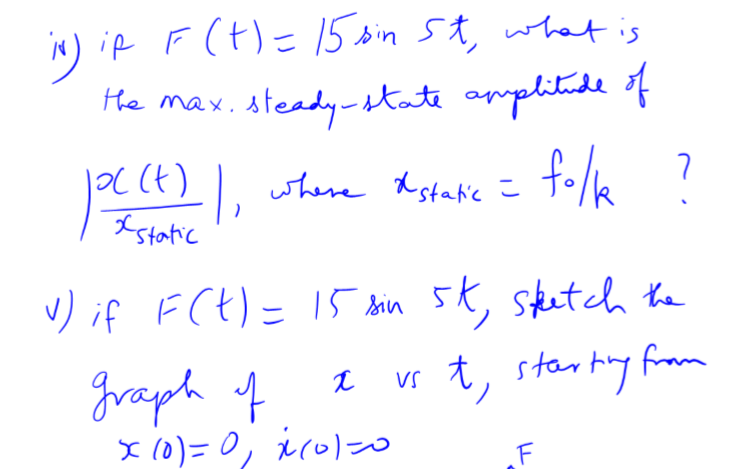 iv) if F(t) = 15 sin 5t, what is
the max. steady-state amplitude of
|x(t)/x static|, where x static = f₀/k ?
v) if F(t) = 15 sin 5t, sketch the
graph of x vs t, starting from
x(0)=0, ẋ(0)=0
F